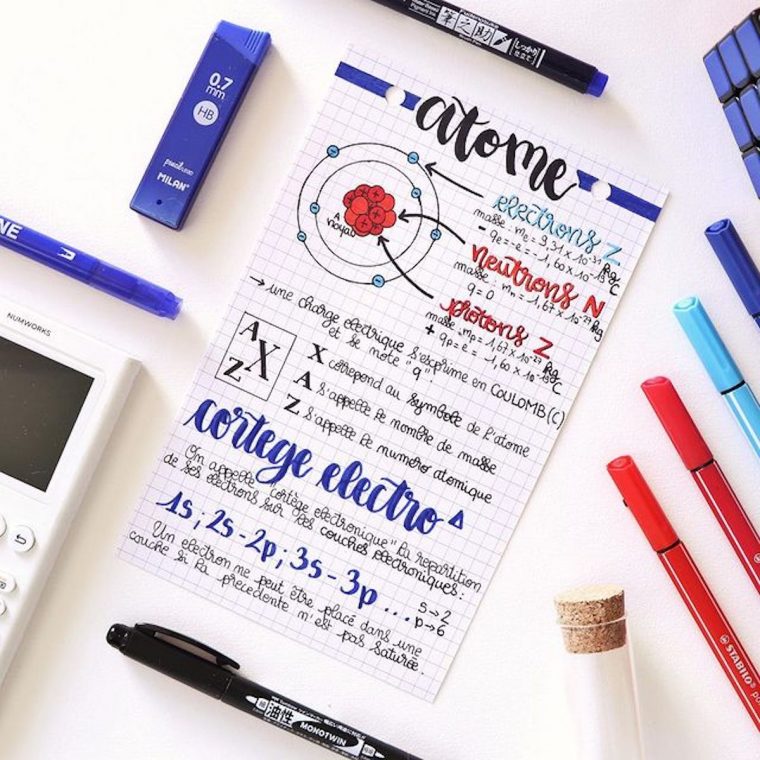 0.7
mm
HB
MILAN
筆之助
しっかり
仕立て
NUMWORKS
atome
noyau
électrons Z
masse : me = 9,31 x 10⁻³¹ kg
- qe = -e = -1,60 x 10⁻¹⁹ C
neutrons N
masse : mn = 1,67 x 10⁻²⁷ kg
q = 0
protons Z
masse : mp = 1,67 x 10⁻²⁷ kg
+ qp = e = 1,60 x 10⁻¹⁹ C
→ une charge électrique s'exprime en COULOMB (C)
et se note "q".
A
Z X
X correpond au symbole de l'atome
A s'appelle le nombre de masse
Z s'appelle le numéro atomique
cortège électro
On appelle "cortège électronique" la répartition
de ses électrons sur les couches électroniques :
1s ; 2s - 2p ; 3s - 3p ...
s → 2
p → 6
Un électron ne peut être placé dans une
couche si la précédente n'est pas saturée.
油性
MONOTWIN
STABILO